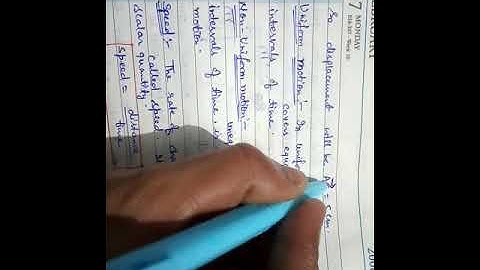 7 MONDAY
So displacement will be AC = 5 cm.
Uniform motion:- In unifo
covers equ
intervals of time.
Non-Uniform motion:-
uneq
intervals of time, i
motion.
Speed:- The rate of cha
called speed. It
scalar quantity.
Speed = distance
time
200